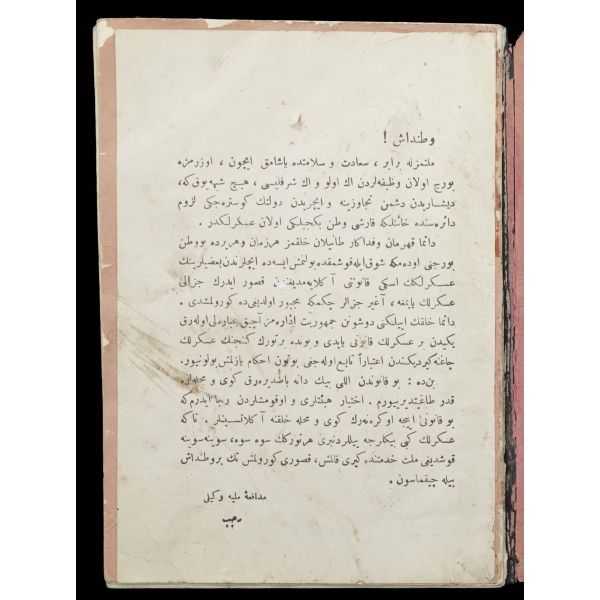 وطنداش !
ملتمزله برابر ، سعادت و سلامتده ياشامق ايچون ، اوزرمزه
بورج اولان وظيفه‌لردن اك اولو و اك شرفليسی ، هيچ شبهه يوق كه،
ديشاريدن دشمن تجاوزينه و ايچريدن دولتك كوستره‌جكی لزوم
دائره‌سنده خائنلكه قارشی وطن بكجيلكی اولان عسكرلكدر .
دائما قهرمان و فداكار طانيلان خلقمز هرزمان و هر يرده بووطن
بورجنی اوده‌مكه شوق ايله قوشمقده بولنمش ايسه‌ده ايچلرندن بعضيلرينك
عسكرلك اسكی قانوننی آكلايه‌مديغندن قصور ايدرك جزالی
عسكرلك يايمغه ، آغير جزالر چكمكه مجبور اولديغی ده كورولمشدی .
دائما خلقك اييلكنی دوشونن جمهوريت اداره‌مز آچيق عباره‌لی اوله‌رق
يكيدن بر عسكرلك قانونی ياپدی و بونده بر تورك كنجنك عسكرلك
چاغنه كيرديكندن اعتباراً تابع اوله‌جغی بوتون احكام يازلمش بولونيور.
بن ده : بو قانوندن اللی بيك دانه باصديره‌رق كوی و محله‌لره
قدر طاغيتديرييورم . اختيار هيئتلری و اوقومشلردن رجا ايدرم كه
بو قانونی اييجه اوكره‌نه‌رك كوی و محله خلقنه آكلاتسينلر . تاكه
عسكرلك كبی بيكلرجه ييللردنبری هر توركك سوه سوه، سوينه سوينه
قوشديغی ملت خدمتنده كيری قالمش، قصوری كورولمش تك بر وطنداش
بيله چيقماسون .
مدافعۀ مليه وكيلی
رجب